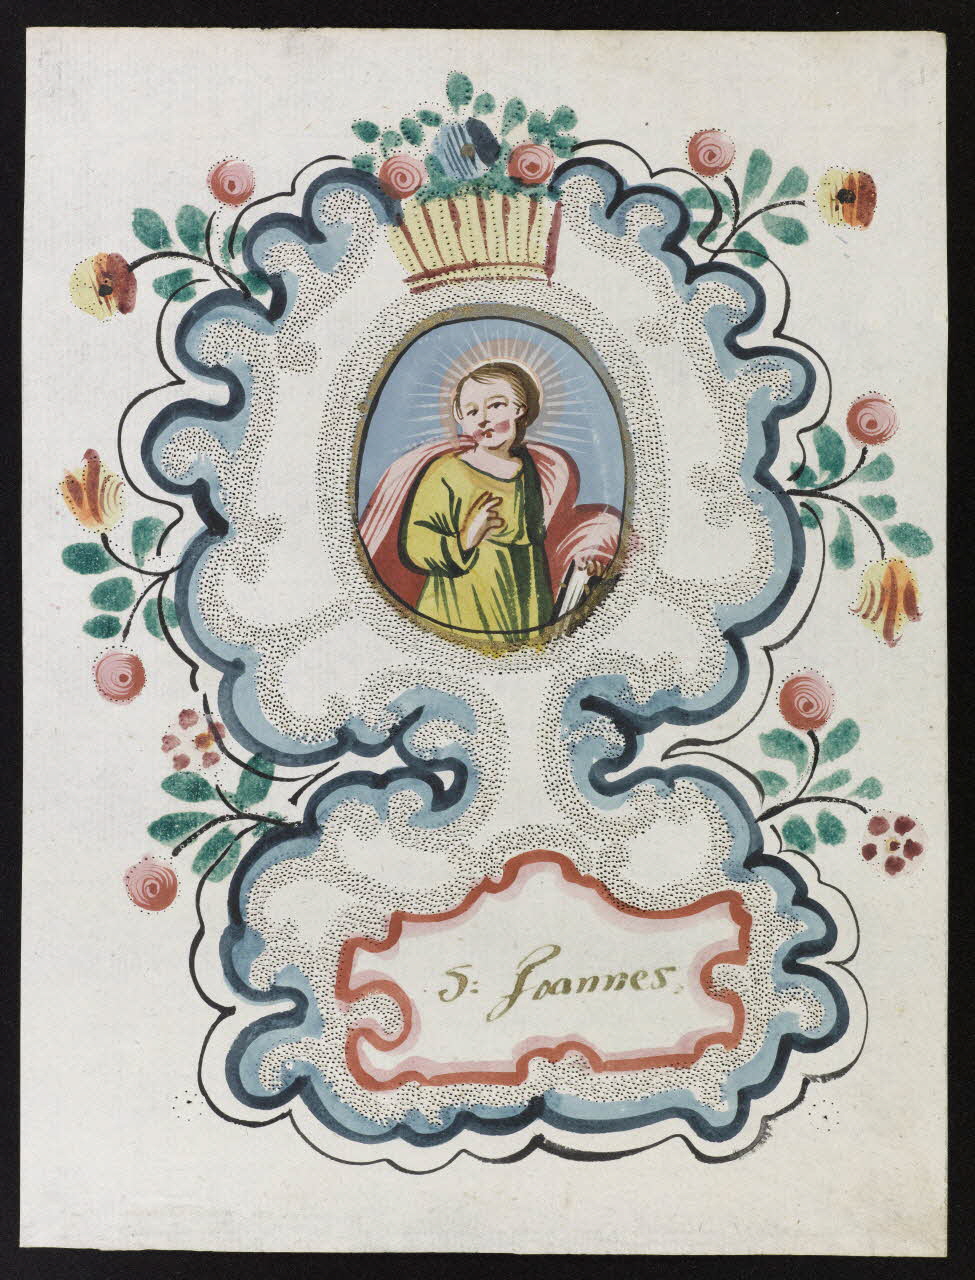 S: Joannes.